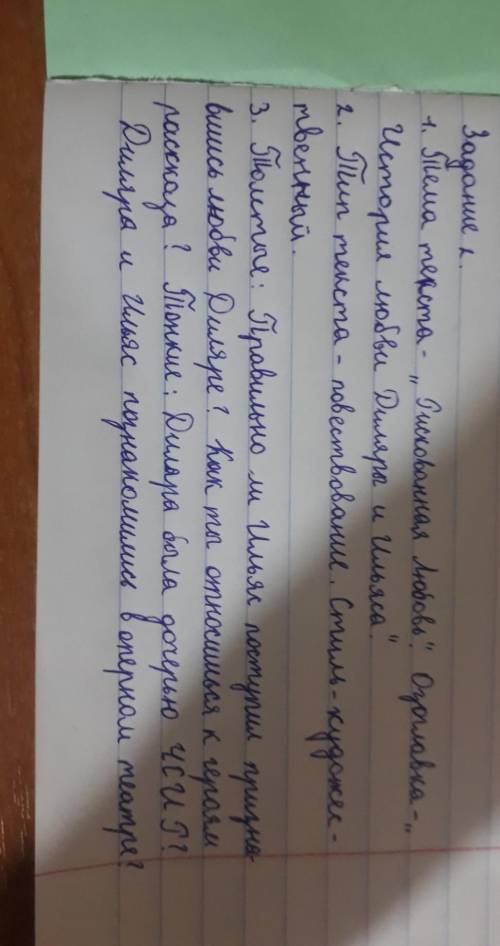 Задание 2.
1. Тема текста - „Рискованная любовь". Озаглавка - „
История любви Диляры и Ильяса."
2. Тип текста - повествование. Стиль - художес-
твенный.
3. Толстые: Правильно ли Ильяс поступил призна-
вшись любви Диляре? Как ты относишься к героям
рассказа? Тонкие: Диляра была дочерью ЧСИР?
Диляра и Ильяс познакомились в оперном театре?